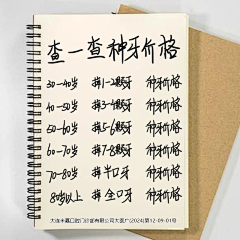 查一查种牙价格
30-40岁 掉1-2颗牙 种牙价格
40-50岁 掉3-4颗牙 种牙价格
50-60岁 掉5-6颗牙 种牙价格
60-70岁 掉7-8颗牙 种牙价格
70-80岁 掉半口牙 种牙价格
80岁以上 掉全口牙 种牙价格
(2024)第12-09-01号